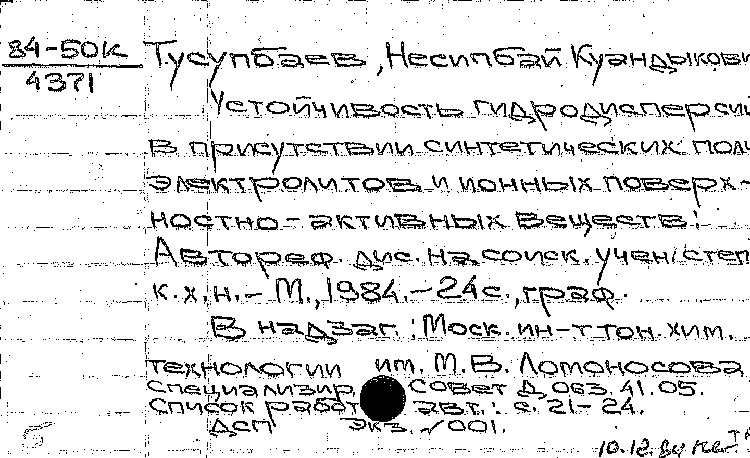 84-50к Тусупбаев, Несипбай Куандыкови
4371
Устойчивость гидродисперси
в присутствии синтетических пол
электролитов и ионных поверх-
ностно-активных веществ:
Автореф. дис. на соиск. учен. степ
к.х.н. - М., 1984. - 24 с., граф.
В надзаг.: Моск. ин-т тон. хим.
технологии им. М.В. Ломоносова
Специализир. совет Д 063.41.05.
Список работ авт.: с. 21-24.
ДСП Экз. √001.
10.12.84